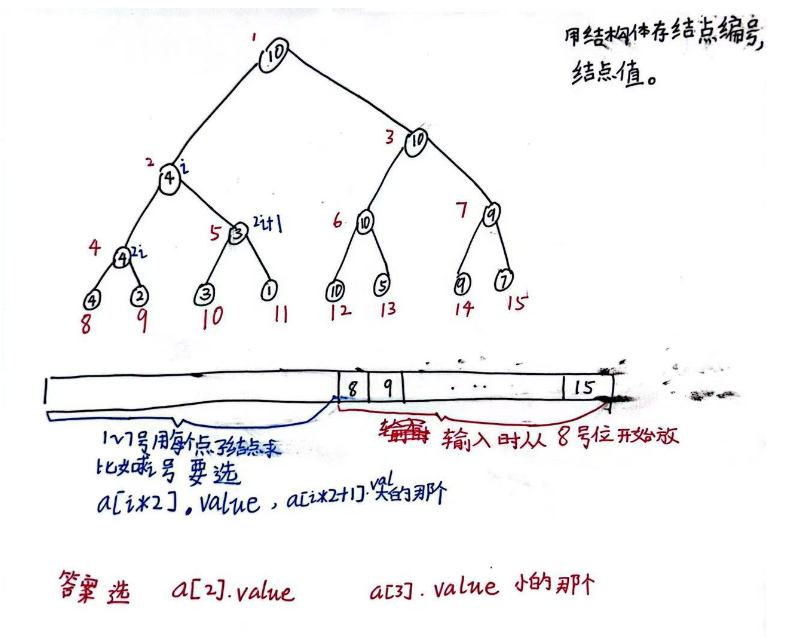 用结构体存结点编号,
结点值。
1
10
3
10
2
4
i
6
10
7
9
5
3
2i+1
4
4
2i
4
2
3
1
10
5
9
7
8
9
10
11
12
13
14
15
8
9
...
15
1~7号用每个点子结点求
输入时从8号位开始放
比如求i号要选
a[i*2].value, a[i*2+1].val大的那个
答案选 a[2].value a[3].value 小的那个